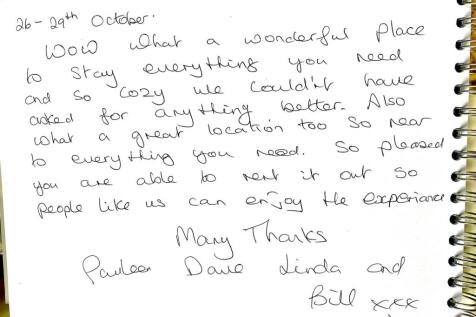 26-29th October.
Wow what a wonderful place
to stay everything you need
and so cozy we couldn't have
asked for anything better. Also
what a great location too so near
to everything you need. So pleased
you are able to rent it out so
people like us can enjoy the experiance
Many Thanks
Pauleen Dave Linda and
Bill xxx